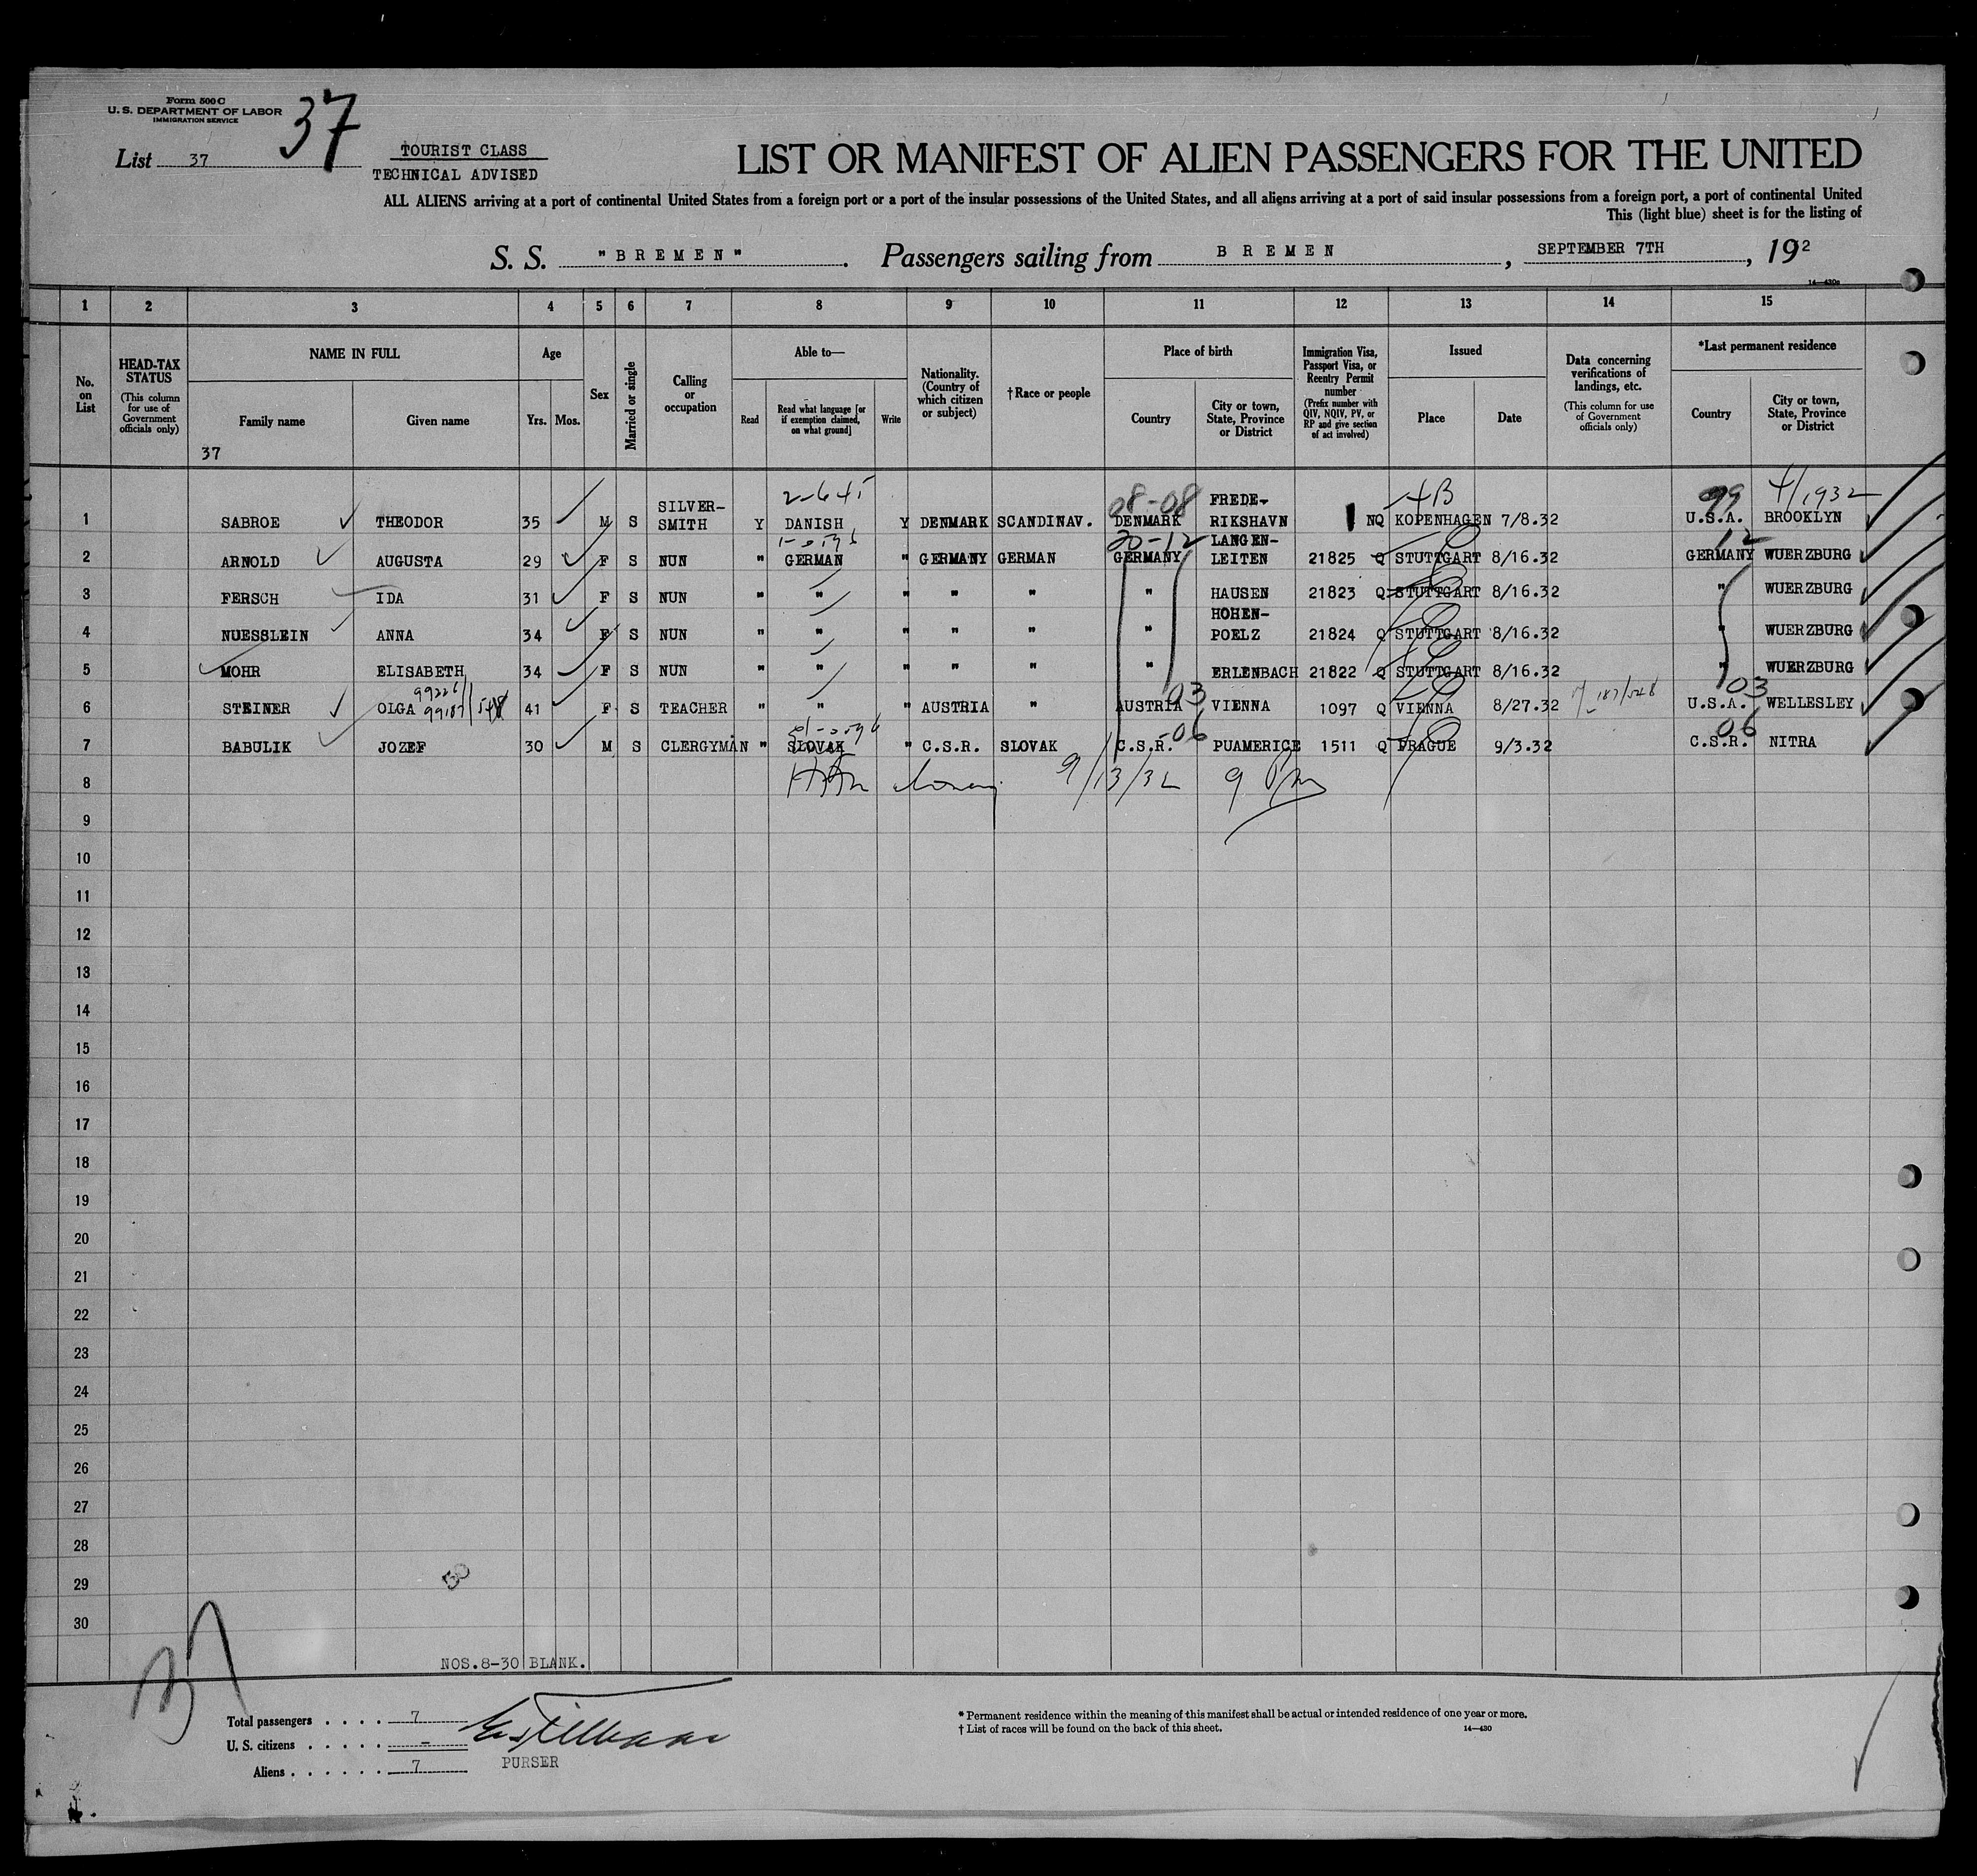 Form 500 C
U. S. DEPARTMENT OF LABOR
IMMIGRATION SERVICE
37
List 37
TOURIST CLASS
TECHNICAL ADVISED
LIST OR MANIFEST OF ALIEN PASSENGERS FOR THE UNITED
ALL ALIENS arriving at a port of continental United States from a foreign port or a port of the insular possessions of the United States, and all aliens arriving at a port of said insular possessions from a foreign port, a port of continental United
This (light blue) sheet is for the listing of
S. S. "BREMEN". Passengers sailing from BREMEN, SEPTEMBER 7TH, 192
14—430a
1 2 3 4 5 6 7 8 9 10 11 12 13 14 15
No. on List
HEAD-TAX STATUS (This column for use of Government officials only)
NAME IN FULL
Family name
Given name
37
Age
Yrs. Mos.
Sex
Married or single
Calling or occupation
Able to—
Read
Read what language [or if exemption claimed, on what ground]
Write
Nationality. (Country of which citizen or subject)
†Race or people
Place of birth
Country
City or town, State, Province or District
Immigration Visa, Passport Visa, or Reentry Permit number (Prefix number with QIV, NQIV, PV, or RP and give section of act involved)
Issued
Place
Date
Data concerning verifications of landings, etc. (This column for use of Government officials only)
*Last permanent residence
Country
City or town, State, Province or District
2-645 08-08 4B 99 4/1932
1 SABROE THEODOR 35 M S SILVER-SMITH Y DANISH Y DENMARK SCANDINAV. DENMARK FREDE-RIKSHAVN NQ KOPENHAGEN 7/8.32 U.S.A. BROOKLYN
20-12 12
2 ARNOLD AUGUSTA 29 F S NUN " GERMAN " GERMANY GERMAN GERMANY LANGEN-LEITEN 21825 Q STUTTGART 8/16.32 GERMANY WUERZBURG
3 FERSCH IDA 31 F S NUN " " " " " " HAUSEN 21823 Q STUTTGART 8/16.32 " WUERZBURG
4 NUESSLEIN ANNA 34 F S NUN " " " " " " HOHEN-POELZ 21824 Q STUTTGART 8/16.32 " WUERZBURG
5 MOHR ELISABETH 34 F S NUN " " " " " " ERLENBACH 21822 Q STUTTGART 8/16.32 " WUERZBURG
99226 99187/548 03 187/548 03
6 STEINER OLGA 41 F S TEACHER " " " AUSTRIA " AUSTRIA VIENNA 1097 Q VIENNA 8/27.32 U.S.A. WELLESLEY
06 06
7 BABULIK JOZEF 30 M S CLERGYMAN " SLOVAK " C.S.R. SLOVAK C.S.R. PUAMERICE 1511 Q PRAGUE 9/3.32 C.S.R. NITRA
8 9/13/32 9 Pm
9
10
11
12
13
14
15
16
17
18
19
20
21
22
23
24
25
26
27
28
29
30
NOS.8-30 BLANK.
37
Total passengers . . . . 7
U. S. citizens . . . . . -
Aliens . . . . . . 7
PURSER
* Permanent residence within the meaning of this manifest shall be actual or intended residence of one year or more.
† List of races will be found on the back of this sheet. 14—430